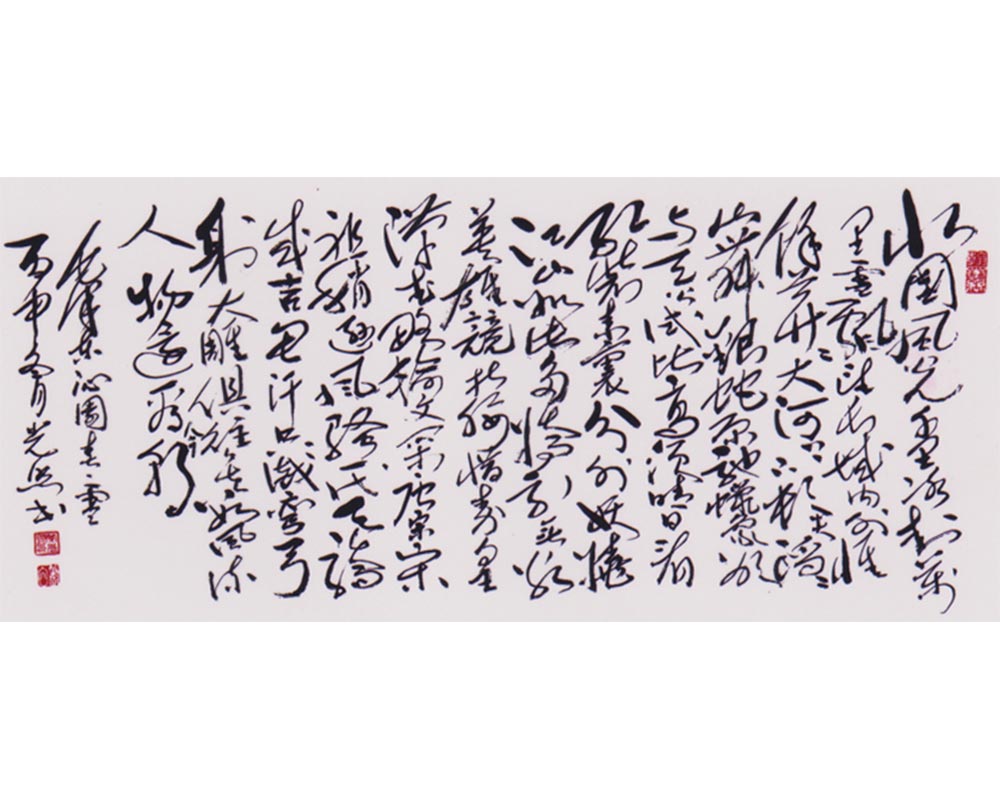 北国风光千里冰封万
里雪飘望长城内外惟
馀莽莽大河上下顿失滔滔
山舞银蛇原驰蜡象欲
与天公试比高须晴日看
红装素裹分外妖娆
江山如此多娇引无数
英雄竞折腰惜秦皇
汉武略输文采唐宗宋
祖稍逊风骚一代天骄
成吉思汗只识弯弓
射大雕俱往矣数风流
人物还看今朝
毛泽东沁园春雪
丙申